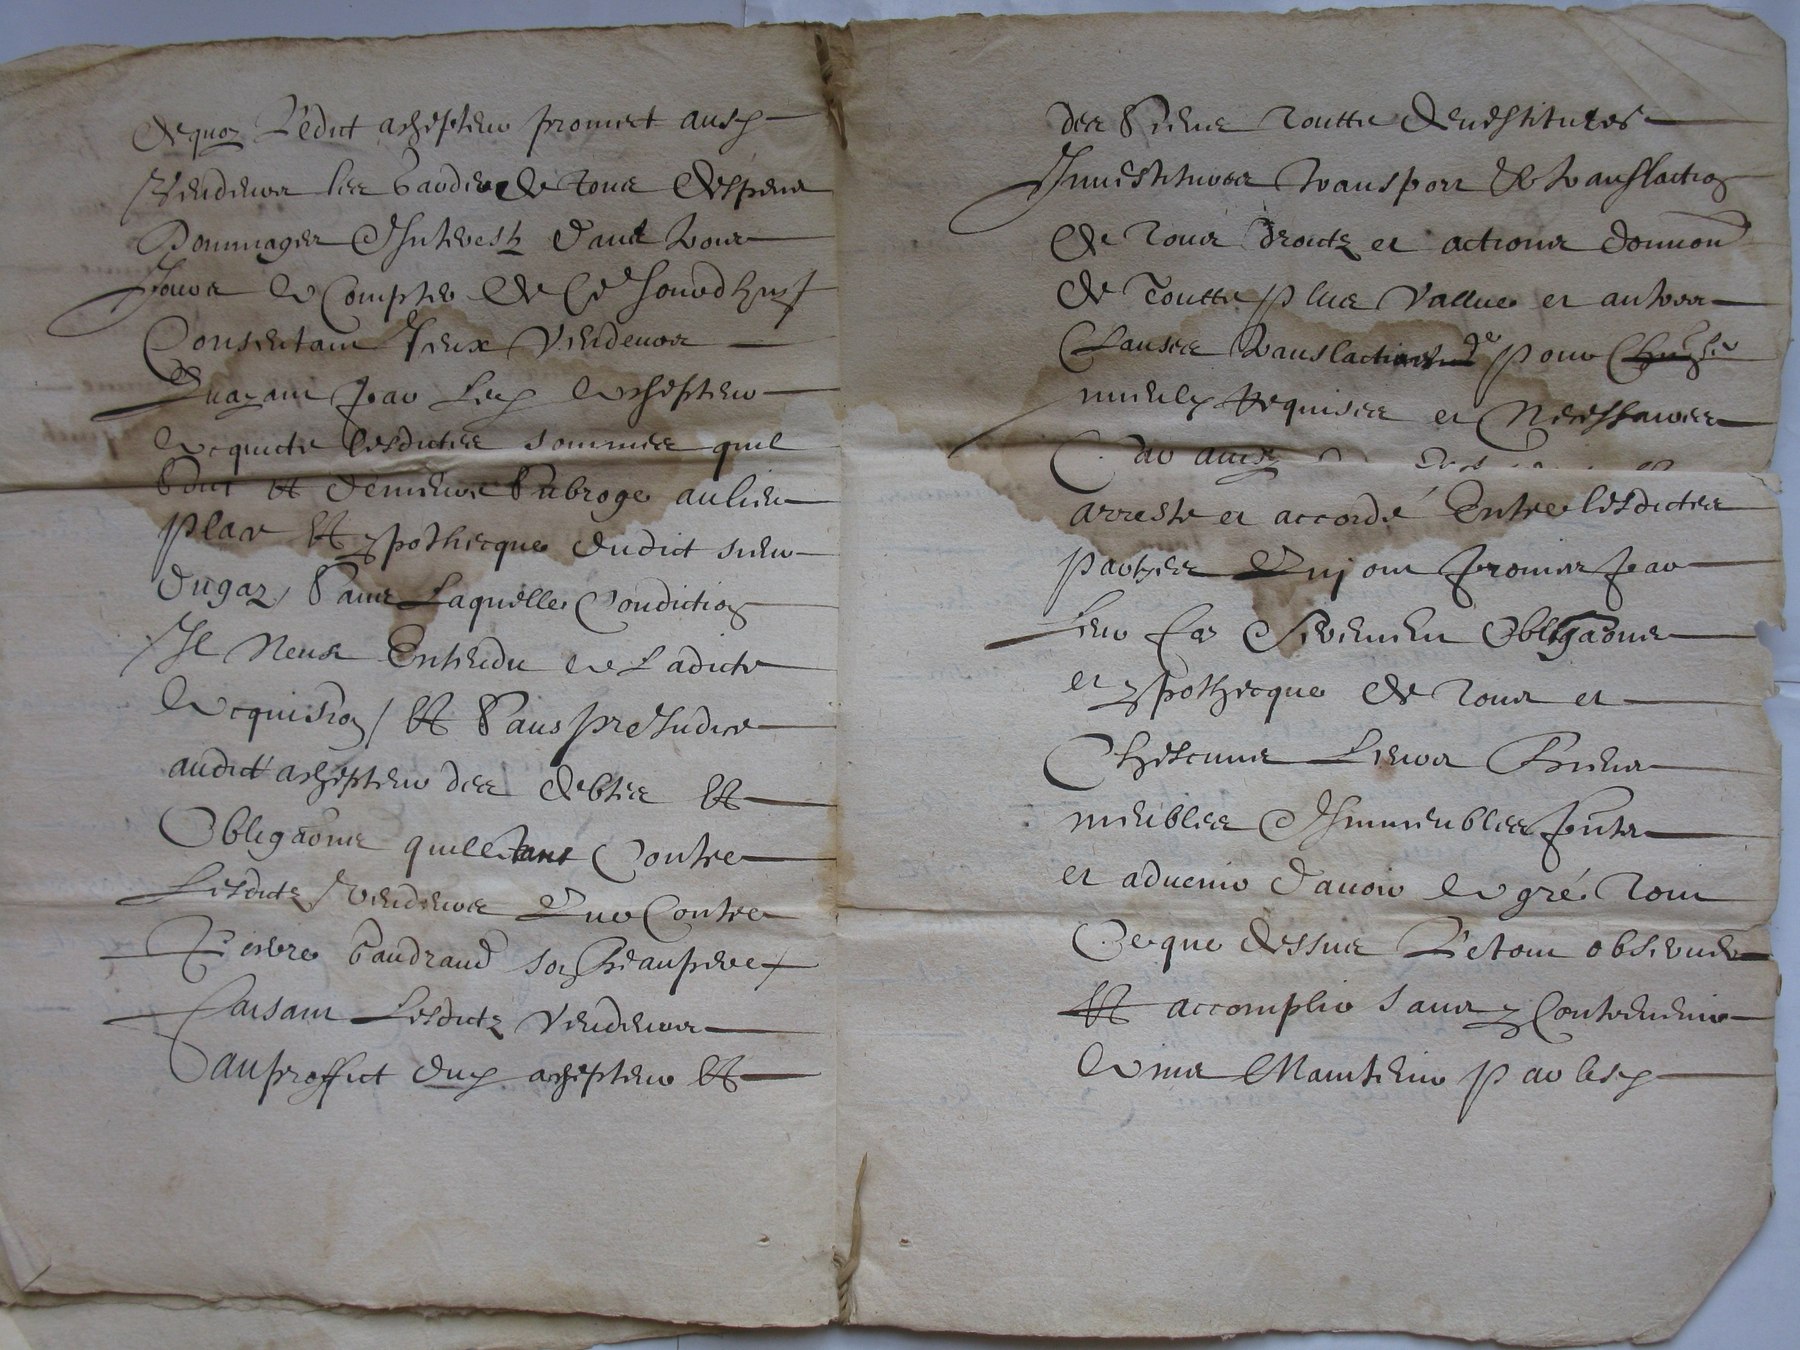 de quoy Ledict achepteur promect ausd
Vendeurs les garder de tous despens
Dommages Et Interestz dans trois
Jours a Compter de Ce Jourdhuy
Consentant Iceux Vendeurs
quayant Icelluy achepteur
acquicté lesdictes sommes quil
Soit et demeure Subrogé au lieu
place et ypothecque dudict sieur
dugaz, Sans Laquelle Condiction
Il Neust Entendu a Ladicte
acquision / et Sans preJudice
audict achepteur des debtes et
Obligaons quil a tant Contre
Lesdictz Vendeurs que Contre
Pierre Gaudrand son Beaupere /
faisant Lesdictz Vendeurs
au proffict dud achepteur et
des Siens toutte devestitures
Investitures transport et translaction
de tous droictz et actions donnaon
de toutte plus Vallue et autres
Clauses translactives de pour
mieulx Requises et Necessaires
Car ainsy
arresté et accordé Entre lesdictes
parties qui ont promis par
Leur foy Serement Obligaons
et ypothecque de tous et
Chescuns Leurs Biens
meubles Et Immeubles pntz
et advenir davoir a gré tout
Ce que dessus Le tout observer
et accomplir sans y Contrevenir
ains Maintenir par lesd